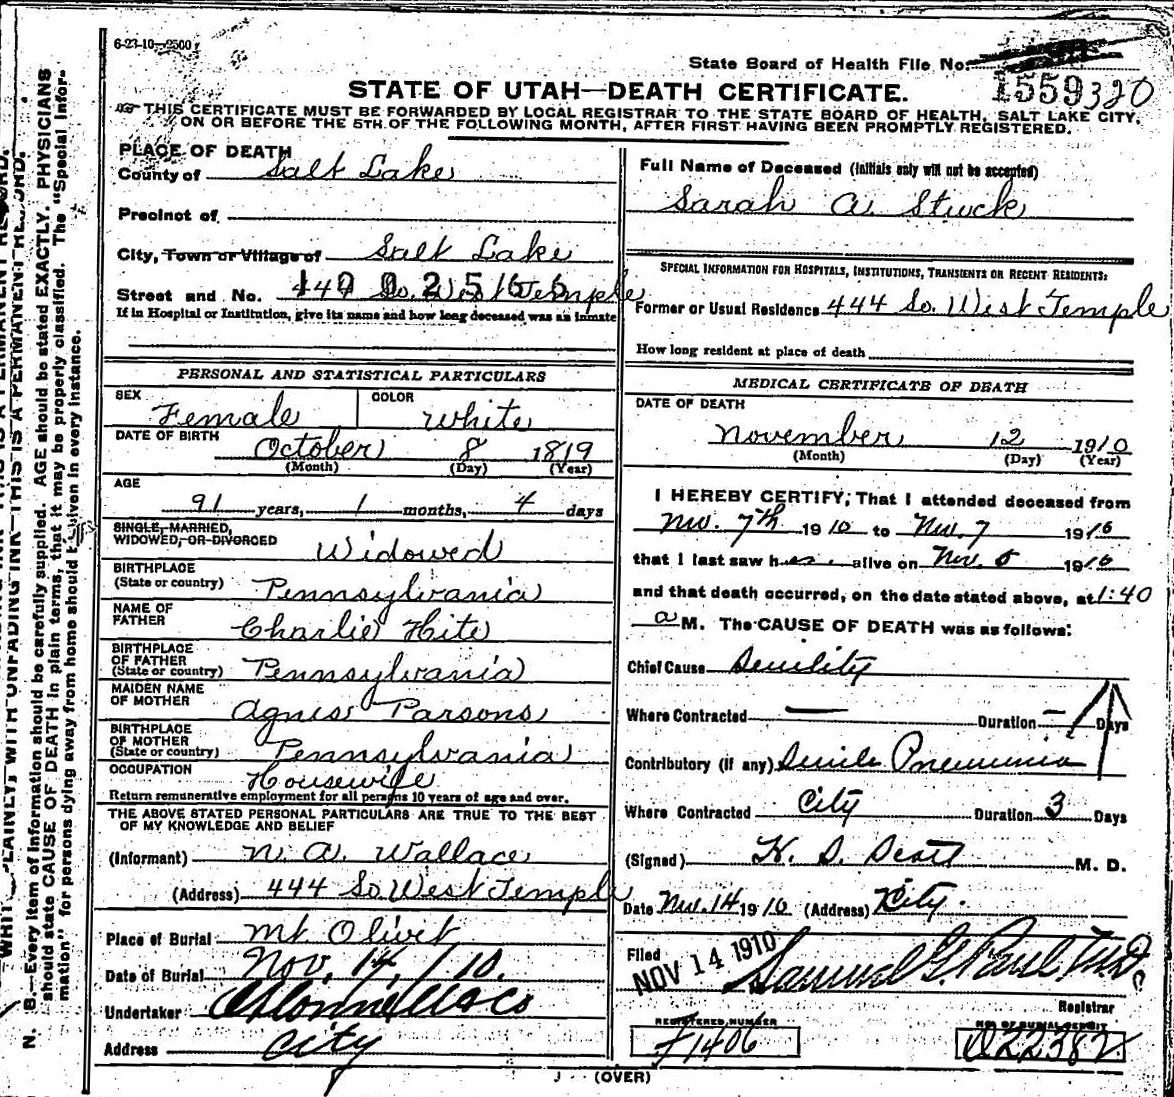 6-23-10—2500
State Board of Health File No.
1559320
STATE OF UTAH—DEATH CERTIFICATE.
THIS CERTIFICATE MUST BE FORWARDED BY LOCAL REGISTRAR TO THE STATE BOARD OF HEALTH, SALT LAKE CITY,
ON OR BEFORE THE 5TH OF THE FOLLOWING MONTH, AFTER FIRST HAVING BEEN PROMPTLY REGISTERED.
PLACE OF DEATH
County of Salt Lake
Precinct of
City, Town or Village of Salt Lake
Street and No. 444 So. West Temple
If in Hospital or Institution, give its name and how long deceased was an inmate
PERSONAL AND STATISTICAL PARTICULARS
SEX Female COLOR White
DATE OF BIRTH October 8 1819
(Month) (Day) (Year)
AGE
91 years, 1 months, 4 days
SINGLE, MARRIED,
WIDOWED, OR DIVORCED Widowed
BIRTHPLACE
(State or country) Pennsylvania
NAME OF
FATHER Charlie Hite
BIRTHPLACE
OF FATHER
(State or country) Pennsylvania
MAIDEN NAME
OF MOTHER Agnes Parsons
BIRTHPLACE
OF MOTHER
(State or country) Pennsylvania
OCCUPATION Housewife
Return remunerative employment for all persons 10 years of age and over.
THE ABOVE STATED PERSONAL PARTICULARS ARE TRUE TO THE BEST
OF MY KNOWLEDGE AND BELIEF
(Informant) N. A. Wallace
(Address) 444 So West Temple
Place of Burial Mt Olivet
Date of Burial Nov. 14, 10.
Undertaker
Address City
Full Name of Deceased (Initials only will not be accepted)
Sarah A. Stuck
SPECIAL INFORMATION FOR HOSPITALS, INSTITUTIONS, TRANSIENTS OR RECENT RESIDENTS:
Former or Usual Residence 444 So. West Temple
How long resident at place of death
MEDICAL CERTIFICATE OF DEATH
DATE OF DEATH
November 12 1910
(Month) (Day) (Year)
I HEREBY CERTIFY, That I attended deceased from
Nov. 7th 1910 to Nov. 7 1910
that I last saw her alive on Nov. 1910
and that death occurred, on the date stated above, at 1:40
a M. The CAUSE OF DEATH was as follows:
Chief Cause Senility
Where Contracted — Duration — Days
Contributory (if any) Senile Pneumonia
Where Contracted City Duration 3 Days
(Signed) M. D.
Date Nov. 14 1910 (Address) City.
Filed NOV 14 1910 Samuel G. Paul, M.D.
Registrar
REGISTERED NUMBER
1406
NO. OF BURIAL PERMIT
22382
(OVER)
N. B.—Every item of information should be carefully supplied. AGE should be stated EXACTLY. PHYSICIANS
should state CAUSE OF DEATH in plain terms, that it may be properly classified. The "Special Infor-
mation" for persons dying away from home should be given in every instance.